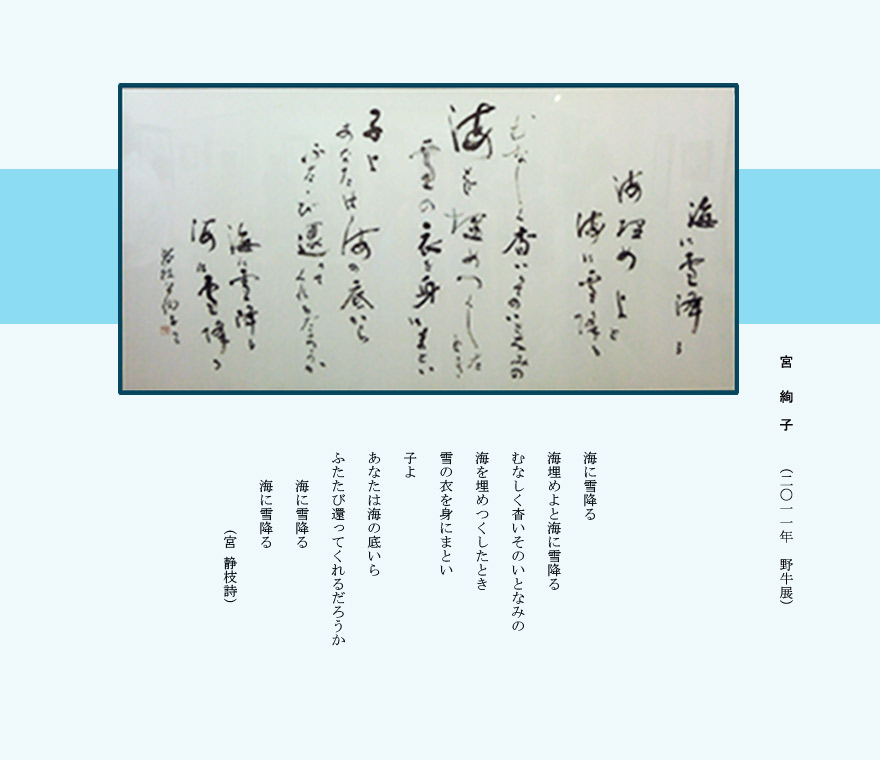 海に雪降る
海埋めよと
海に雪降る
むなしく杳いそのいとなみの
海を埋めつくしたとき
雪の衣を身にまとい
子よ
あなたは海の底いら
ふたたび還ってくれるだろうか
海に雪降る
海に雪降る
宮 絢子 （二〇一一年 野牛展）
海に雪降る
海埋めよと海に雪降る
むなしく杳いそのいとなみの
海を埋めつくしたとき
雪の衣を身にまとい
子よ
あなたは海の底いら
ふたたび還ってくれるだろうか
海に雪降る
海に雪降る
（宮 静枝詩）